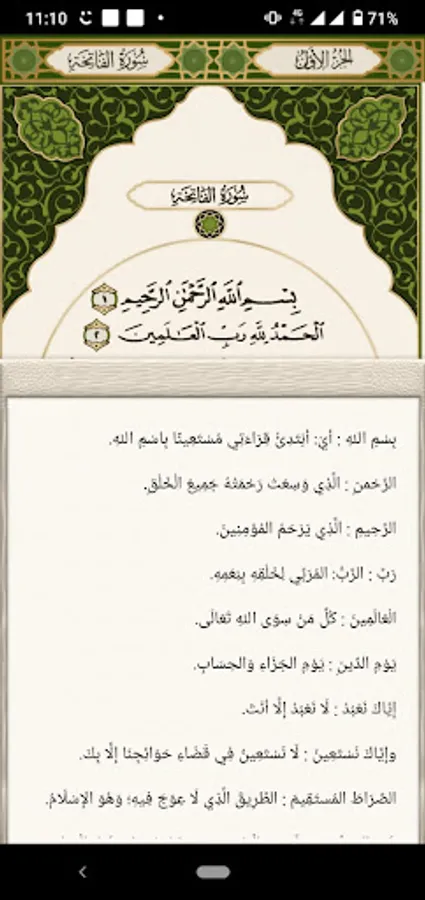 11:10
4G
71%
سُورَةُ الفَاتِحَةِ
الجُزْءُ الأَوَّلُ
سُورَةُ الفَاتِحَةِ
بِسْمِ ٱللَّهِ ٱلرَّحْمَٰنِ ٱلرَّحِيمِ ١
ٱلْحَمْدُ لِلَّهِ رَبِّ ٱلْعَٰلَمِينَ ٢
بِسْمِ اللهِ : أيْ: أبْتَدِئُ قِرَاءَتِي مُسْتَعِينًا بِاسْمِ اللهِ.
الرَّحْمنِ : الَّذِي وَسِعَتْ رَحْمَتُهُ جَمِيعَ الْخَلْقِ.
الرَّحِيمِ : الَّذِي يَرْحَمُ المُؤْمِنِينَ.
رَبِّ : الرَّبُّ: المُرَبِّي لِخَلْقِهِ بِنِعَمِهِ.
الْعَالَمِينَ : كُلُّ مَنْ سِوَى اللهِ تَعَالَى.
يَوْمِ الدِّينِ : يَوْمِ الجَزَاءِ وَالحِسَابِ.
إيَّاكَ نَعْبُدُ : لَا نَعْبُدُ إلَّا أنْتَ.
وإيَّاكَ نَسْتَعِينُ : لَا نَسْتَعِينُ فِي قَضَاءِ حَوَائِجِنَا إلَّا بِكَ.
الصِّرَاطَ المُسْتَقِيمَ : الطَّرِيقَ الَّذِي لَا عِوَجَ فِيهِ؛ وَهُوَ الإسْلَامُ.